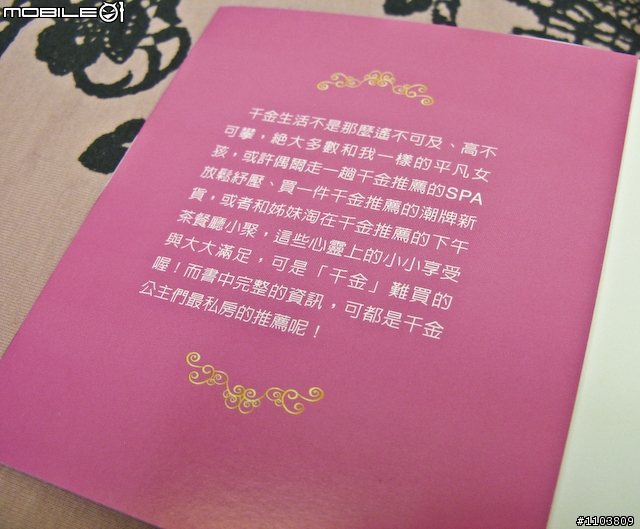 MOBILE01
千金生活不是那麼遙不可及、高不
可攀，絕大多數和我一樣的平凡女
孩，或許偶爾走一趟千金推薦的SPA
放鬆紓壓、買一件千金推薦的潮牌新
貨，或者和姊妹淘在千金推薦的下午
茶餐廳小聚，這些心靈上的小小享受
與大大滿足，可是「千金」難買的
喔！而書中完整的資訊，可都是千金
公主們最私房的推薦呢！
#1103809